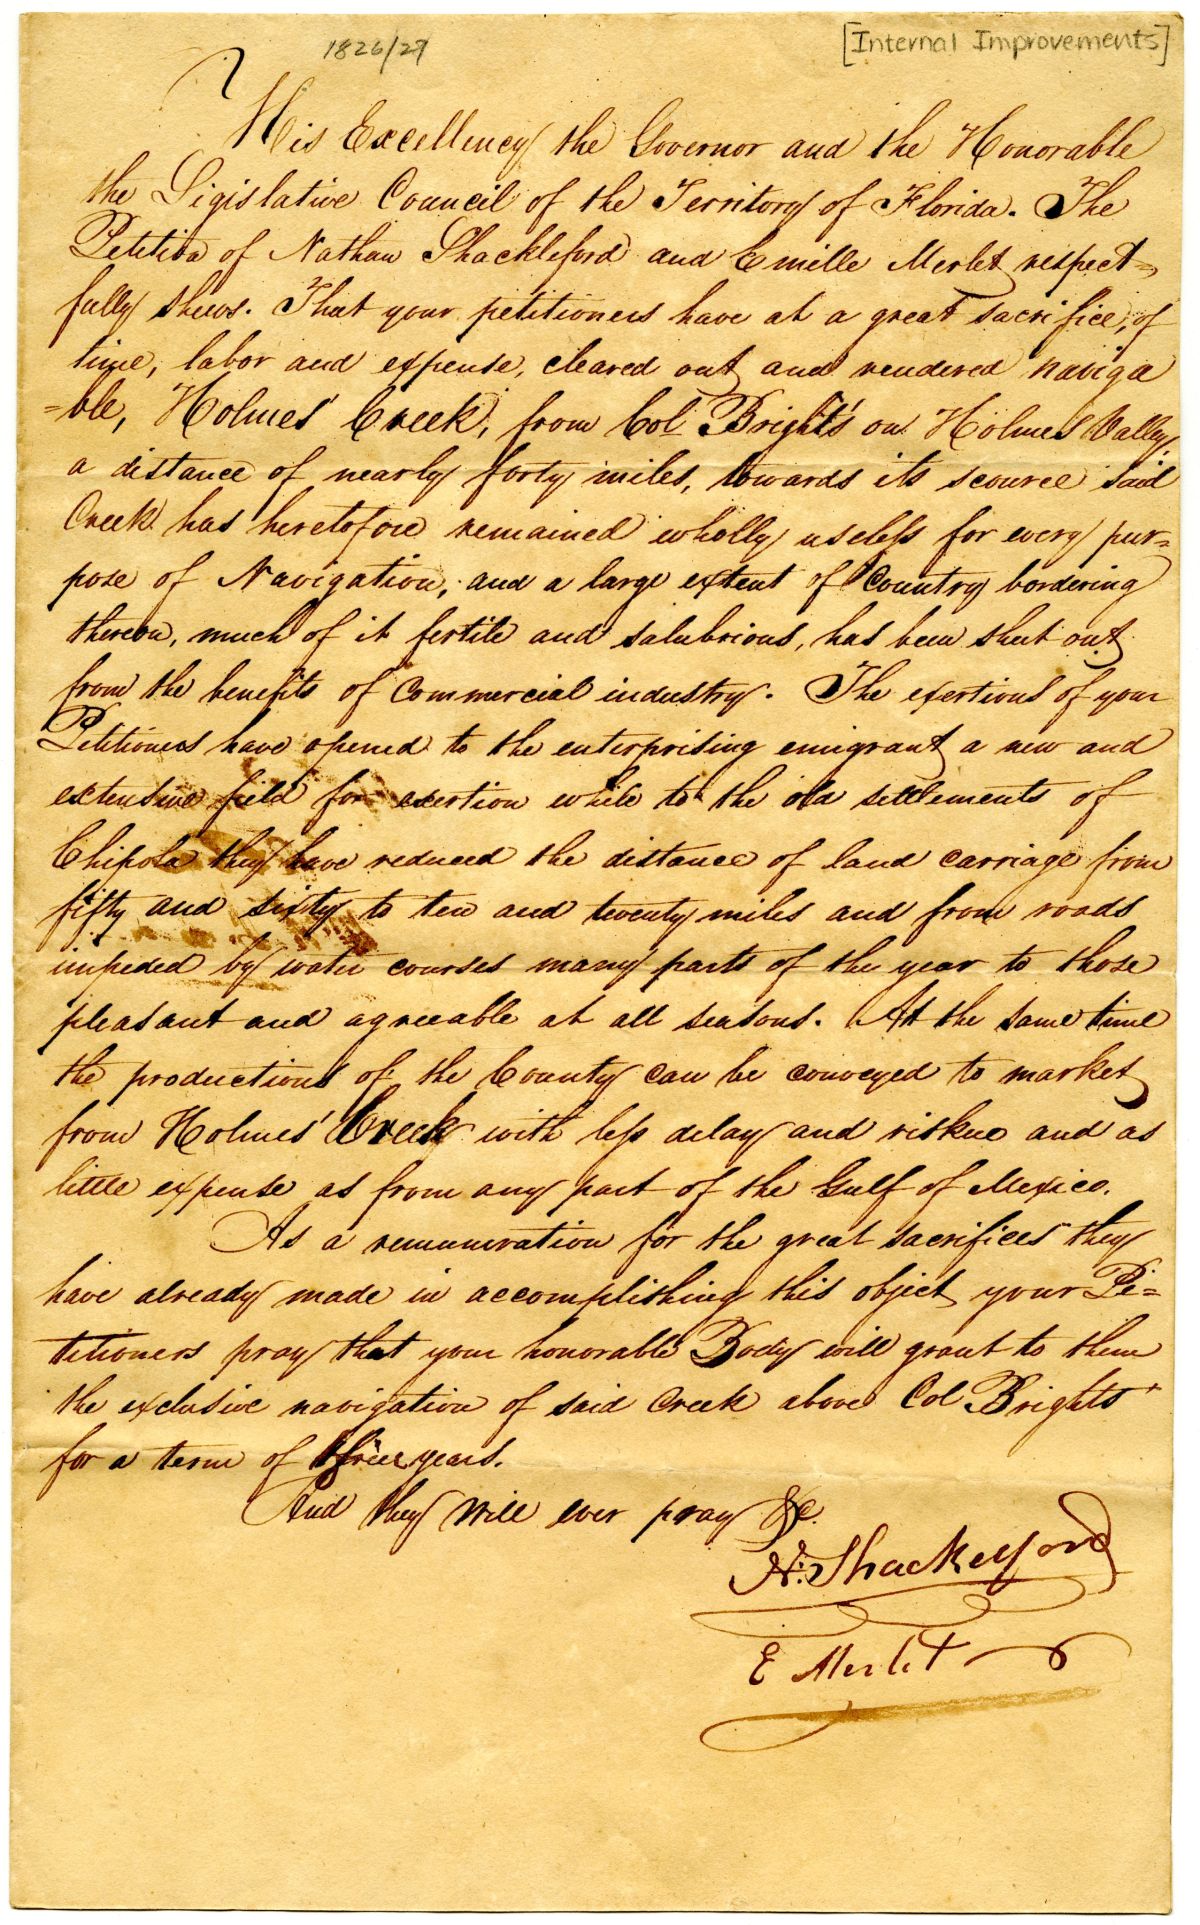 1826/27
[Internal Improvements]
His Excellency the Governor and the Honorable
the Ligislative Council of the Territory of Florida. The
Petition of Nathan Shackleford and Emille Merlet respect=
fully shews. That your petitioners have at a great sacrifice, of
time, labor and expense, cleared out and rendered naviga
=ble, Holmes' Creek, from Col Bright's on Holmes Valley,
a distance of nearly forty miles, towards its scource said
Creek has heretofore remained wholly useless for every pur=
pose of Navigation, and a large extent of Country bordering
thereon, much of it fertile and salubrious, has been shut out
from the benefits of Commercial industry. The exertions of your
Petitioners have opened to the enterprising emigrant a new and
extensive field for exertion while to the old settlements of
Chipola they have reduced the distance of land carriage from
fifty and sixty to ten and twenty miles and from roads
impeded by water courses many parts of the year to those
pleasant and agreeable at all seasons. At the same time
the productions of the County can be conveyed to market
from Holmes' Creek with less delay and riskue and as
little expense as from any part of the Gulf of Mexico.
As a remuneration for the great sacrifices they
have already made in accomplishing this object your Pe=
titioners pray that your honorable Body will grant to them
the exclusive navigation of said Creek above Col Brights
for a term of years.
And they will ever pray &c.
N. Shackelford
E Merlet